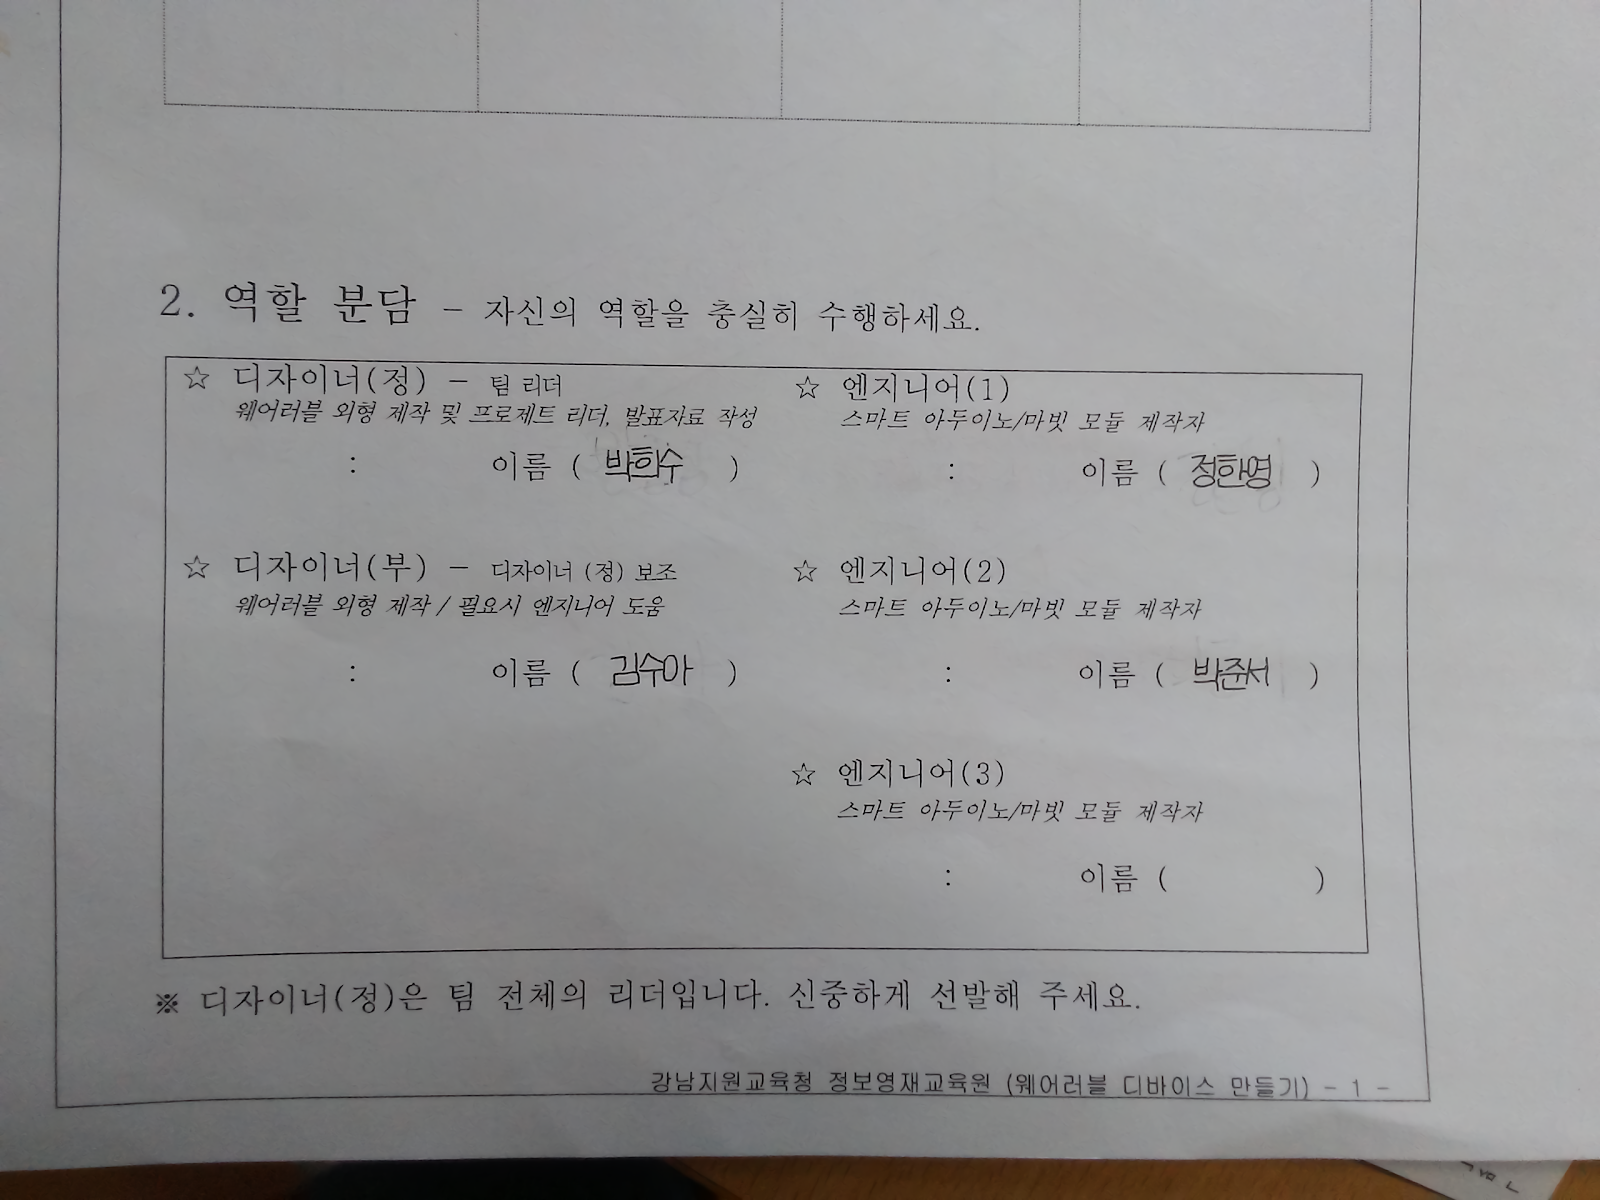 2. 역할 분담 - 자신의 역할을 충실히 수행하세요.
☆ 디자이너(정) - 팀 리더
웨어러블 외형 제작 및 프로제트 리더, 발표자료 작성
: 이름 ( 박희수 )
☆ 디자이너(부) - 디자이너 (정) 보조
웨어러블 외형 제작 / 필요시 엔지니어 도움
: 이름 ( 김수아 )
☆ 엔지니어(1)
스마트 아두이노/마빗 모듈 제작자
: 이름 ( 정한영 )
☆ 엔지니어(2)
스마트 아두이노/마빗 모듈 제작자
: 이름 ( 박준서 )
☆ 엔지니어(3)
스마트 아두이노/마빗 모듈 제작자
: 이름 ( )
※ 디자이너(정)은 팀 전체의 리더입니다. 신중하게 선발해 주세요.
강남지원교육청 정보영재교육원 (웨어러블 디바이스 만들기) - 1 -